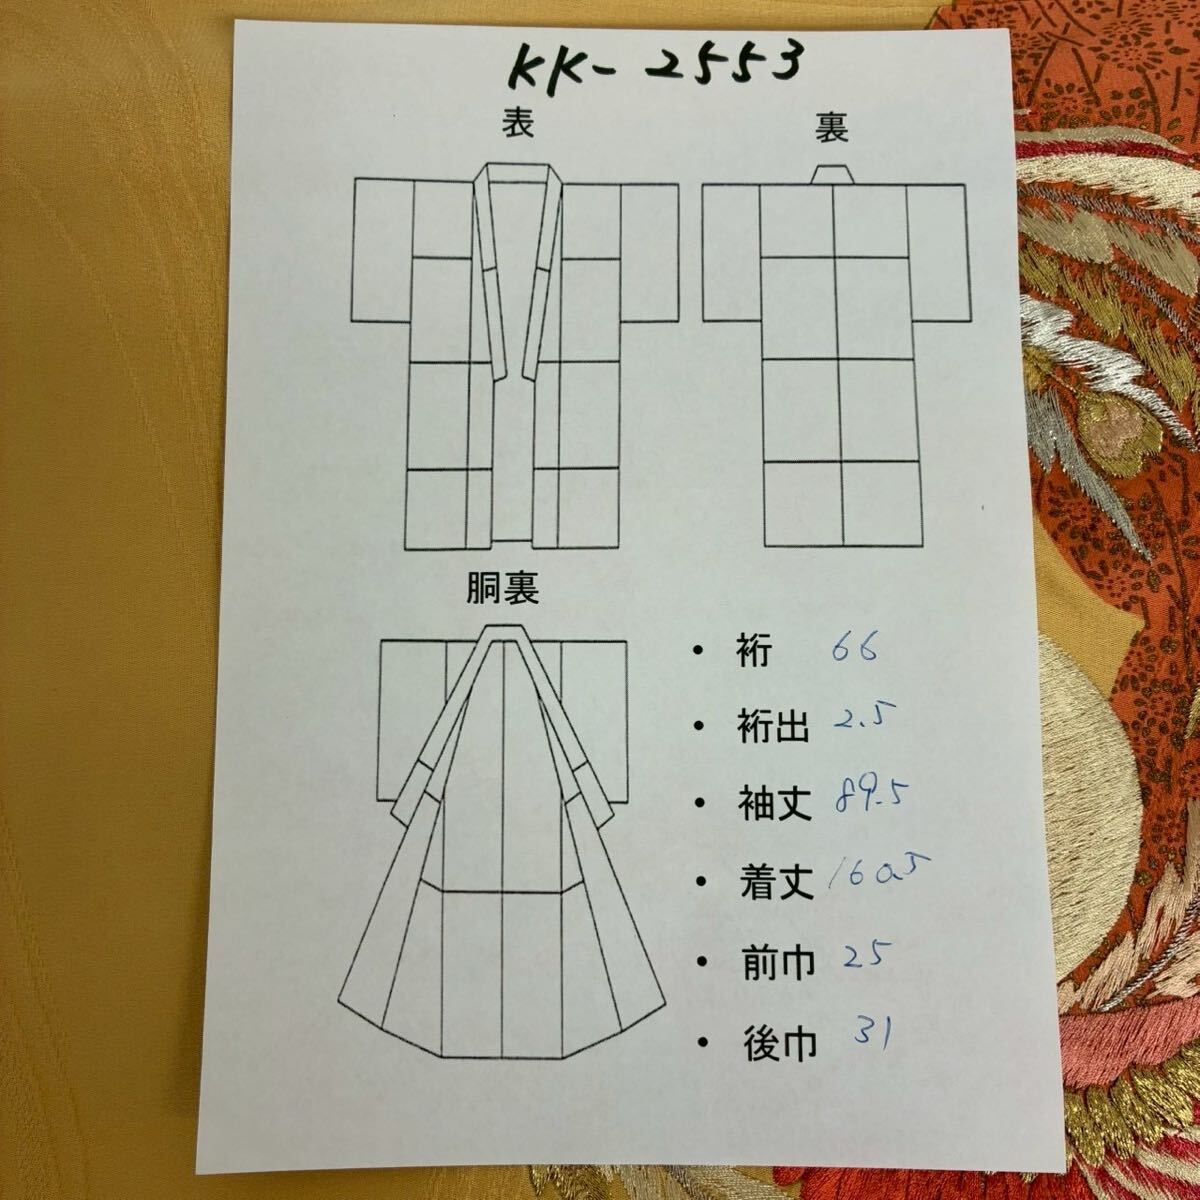 KK-2553
表 裏
胴裏
・裄 66
・裄出 2.5
・袖丈 89.5
・着丈 160.5
・前巾 25
・後巾 31